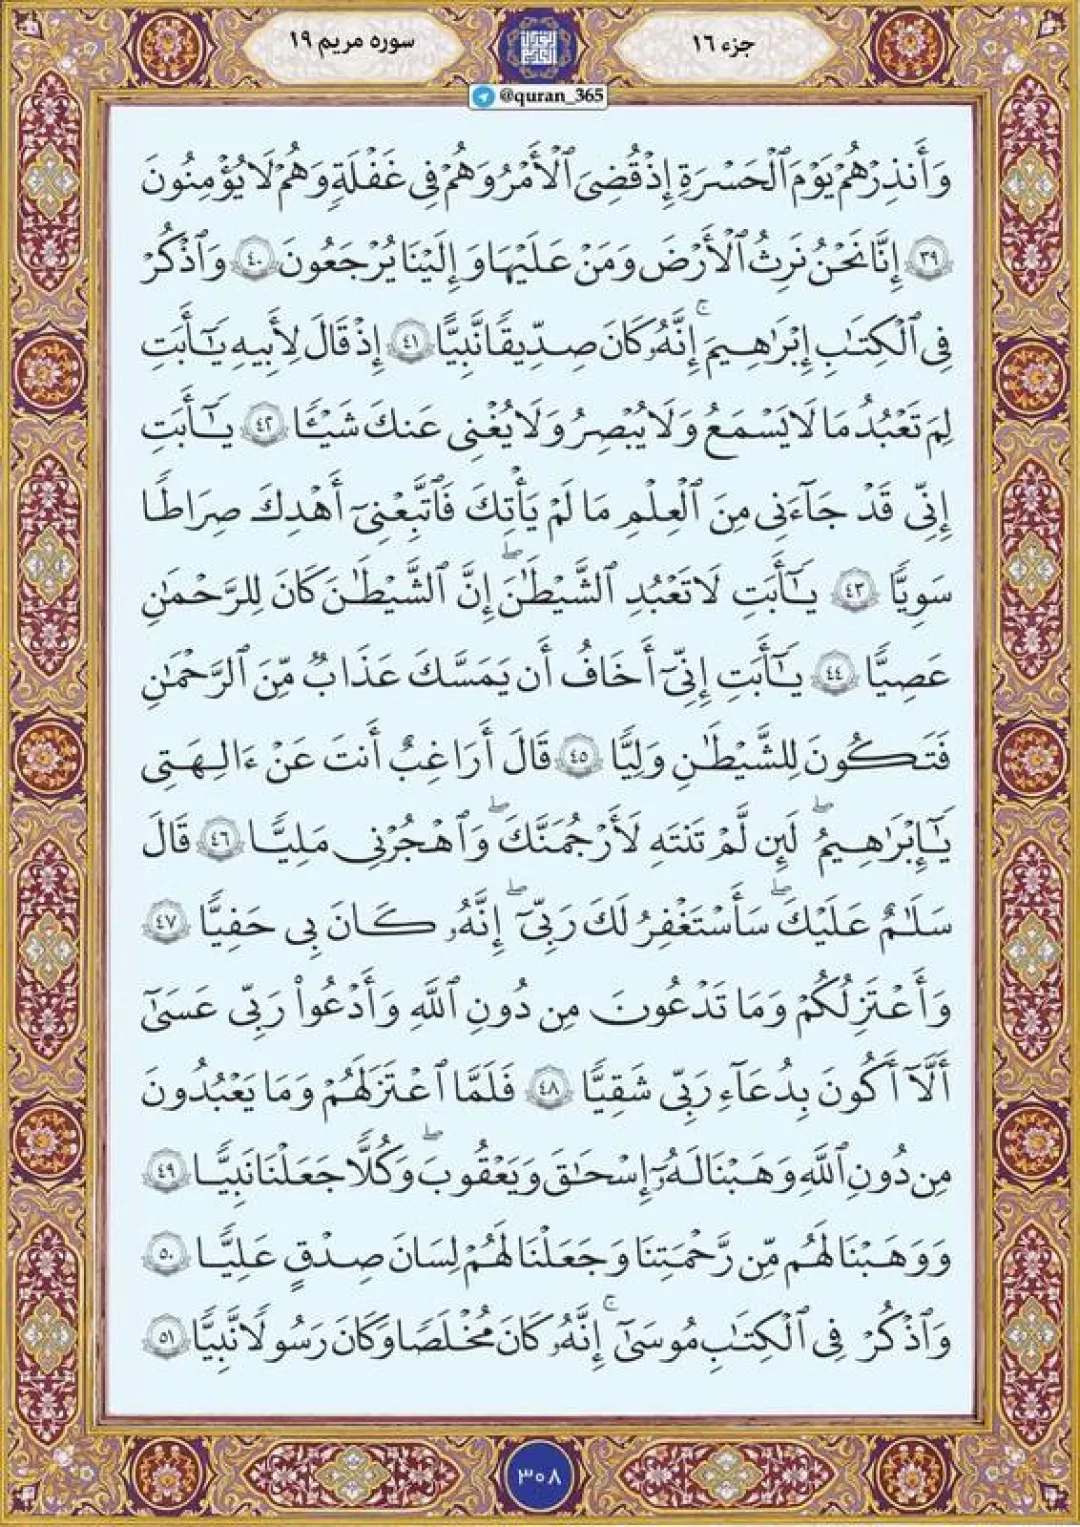 جزء ۱۶
سوره مریم ۱۹
@quran_365
وَأَنذِرْهُمْ يَوْمَ ٱلْحَسْرَةِ إِذْ قُضِىَ ٱلْأَمْرُ وَهُمْ فِى غَفْلَةٍ وَهُمْ لَا يُؤْمِنُونَ
٣٩ إِنَّا نَحْنُ نَرِثُ ٱلْأَرْضَ وَمَنْ عَلَيْهَا وَإِلَيْنَا يُرْجَعُونَ ٤٠ وَٱذْكُرْ
فِى ٱلْكِتَٰبِ إِبْرَٰهِيمَ ۚ إِنَّهُۥ كَانَ صِدِّيقًا نَّبِيًّا ٤١ إِذْ قَالَ لِأَبِيهِ يَٰٓأَبَتِ
لِمَ تَعْبُدُ مَا لَا يَسْمَعُ وَلَا يُبْصِرُ وَلَا يُغْنِى عَنكَ شَيْـًٔا ٤٢ يَٰٓأَبَتِ
إِنِّى قَدْ جَآءَنِى مِنَ ٱلْعِلْمِ مَا لَمْ يَأْتِكَ فَٱتَّبِعْنِىٓ أَهْدِكَ صِرَٰطًا
سَوِيًّا ٤٣ يَٰٓأَبَتِ لَا تَعْبُدِ ٱلشَّيْطَٰنَ ۖ إِنَّ ٱلشَّيْطَٰنَ كَانَ لِلرَّحْمَٰنِ
عَصِيًّا ٤٤ يَٰٓأَبَتِ إِنِّىٓ أَخَافُ أَن يَمَسَّكَ عَذَابٌ مِّنَ ٱلرَّحْمَٰنِ
فَتَكُونَ لِلشَّيْطَٰنِ وَلِيًّا ٤٥ قَالَ أَرَاغِبٌ أَنتَ عَنْ ءَالِهَتِى
يَٰٓإِبْرَٰهِيمُ ۖ لَئِن لَّمْ تَنتَهِ لَأَرْجُمَنَّكَ ۖ وَٱهْجُرْنِى مَلِيًّا ٤٦ قَالَ
سَلَٰمٌ عَلَيْكَ ۖ سَأَسْتَغْفِرُ لَكَ رَبِّىٓ ۖ إِنَّهُۥ كَانَ بِى حَفِيًّا ٤٧
وَأَعْتَزِلُكُمْ وَمَا تَدْعُونَ مِن دُونِ ٱللَّهِ وَأَدْعُوا۟ رَبِّى عَسَىٰٓ
أَلَّآ أَكُونَ بِدُعَآءِ رَبِّى شَقِيًّا ٤٨ فَلَمَّا ٱعْتَزَلَهُمْ وَمَا يَعْبُدُونَ
مِن دُونِ ٱللَّهِ وَهَبْنَا لَهُۥٓ إِسْحَٰقَ وَيَعْقُوبَ ۖ وَكُلًّا جَعَلْنَا نَبِيًّا ٤٩
وَوَهَبْنَا لَهُم مِّن رَّحْمَتِنَا وَجَعَلْنَا لَهُمْ لِسَانَ صِدْقٍ عَلِيًّا ٥٠
وَٱذْكُرْ فِى ٱلْكِتَٰبِ مُوسَىٰٓ ۚ إِنَّهُۥ كَانَ مُخْلَصًا وَكَانَ رَسُولًا نَّبِيًّا ٥١
۳۰۸